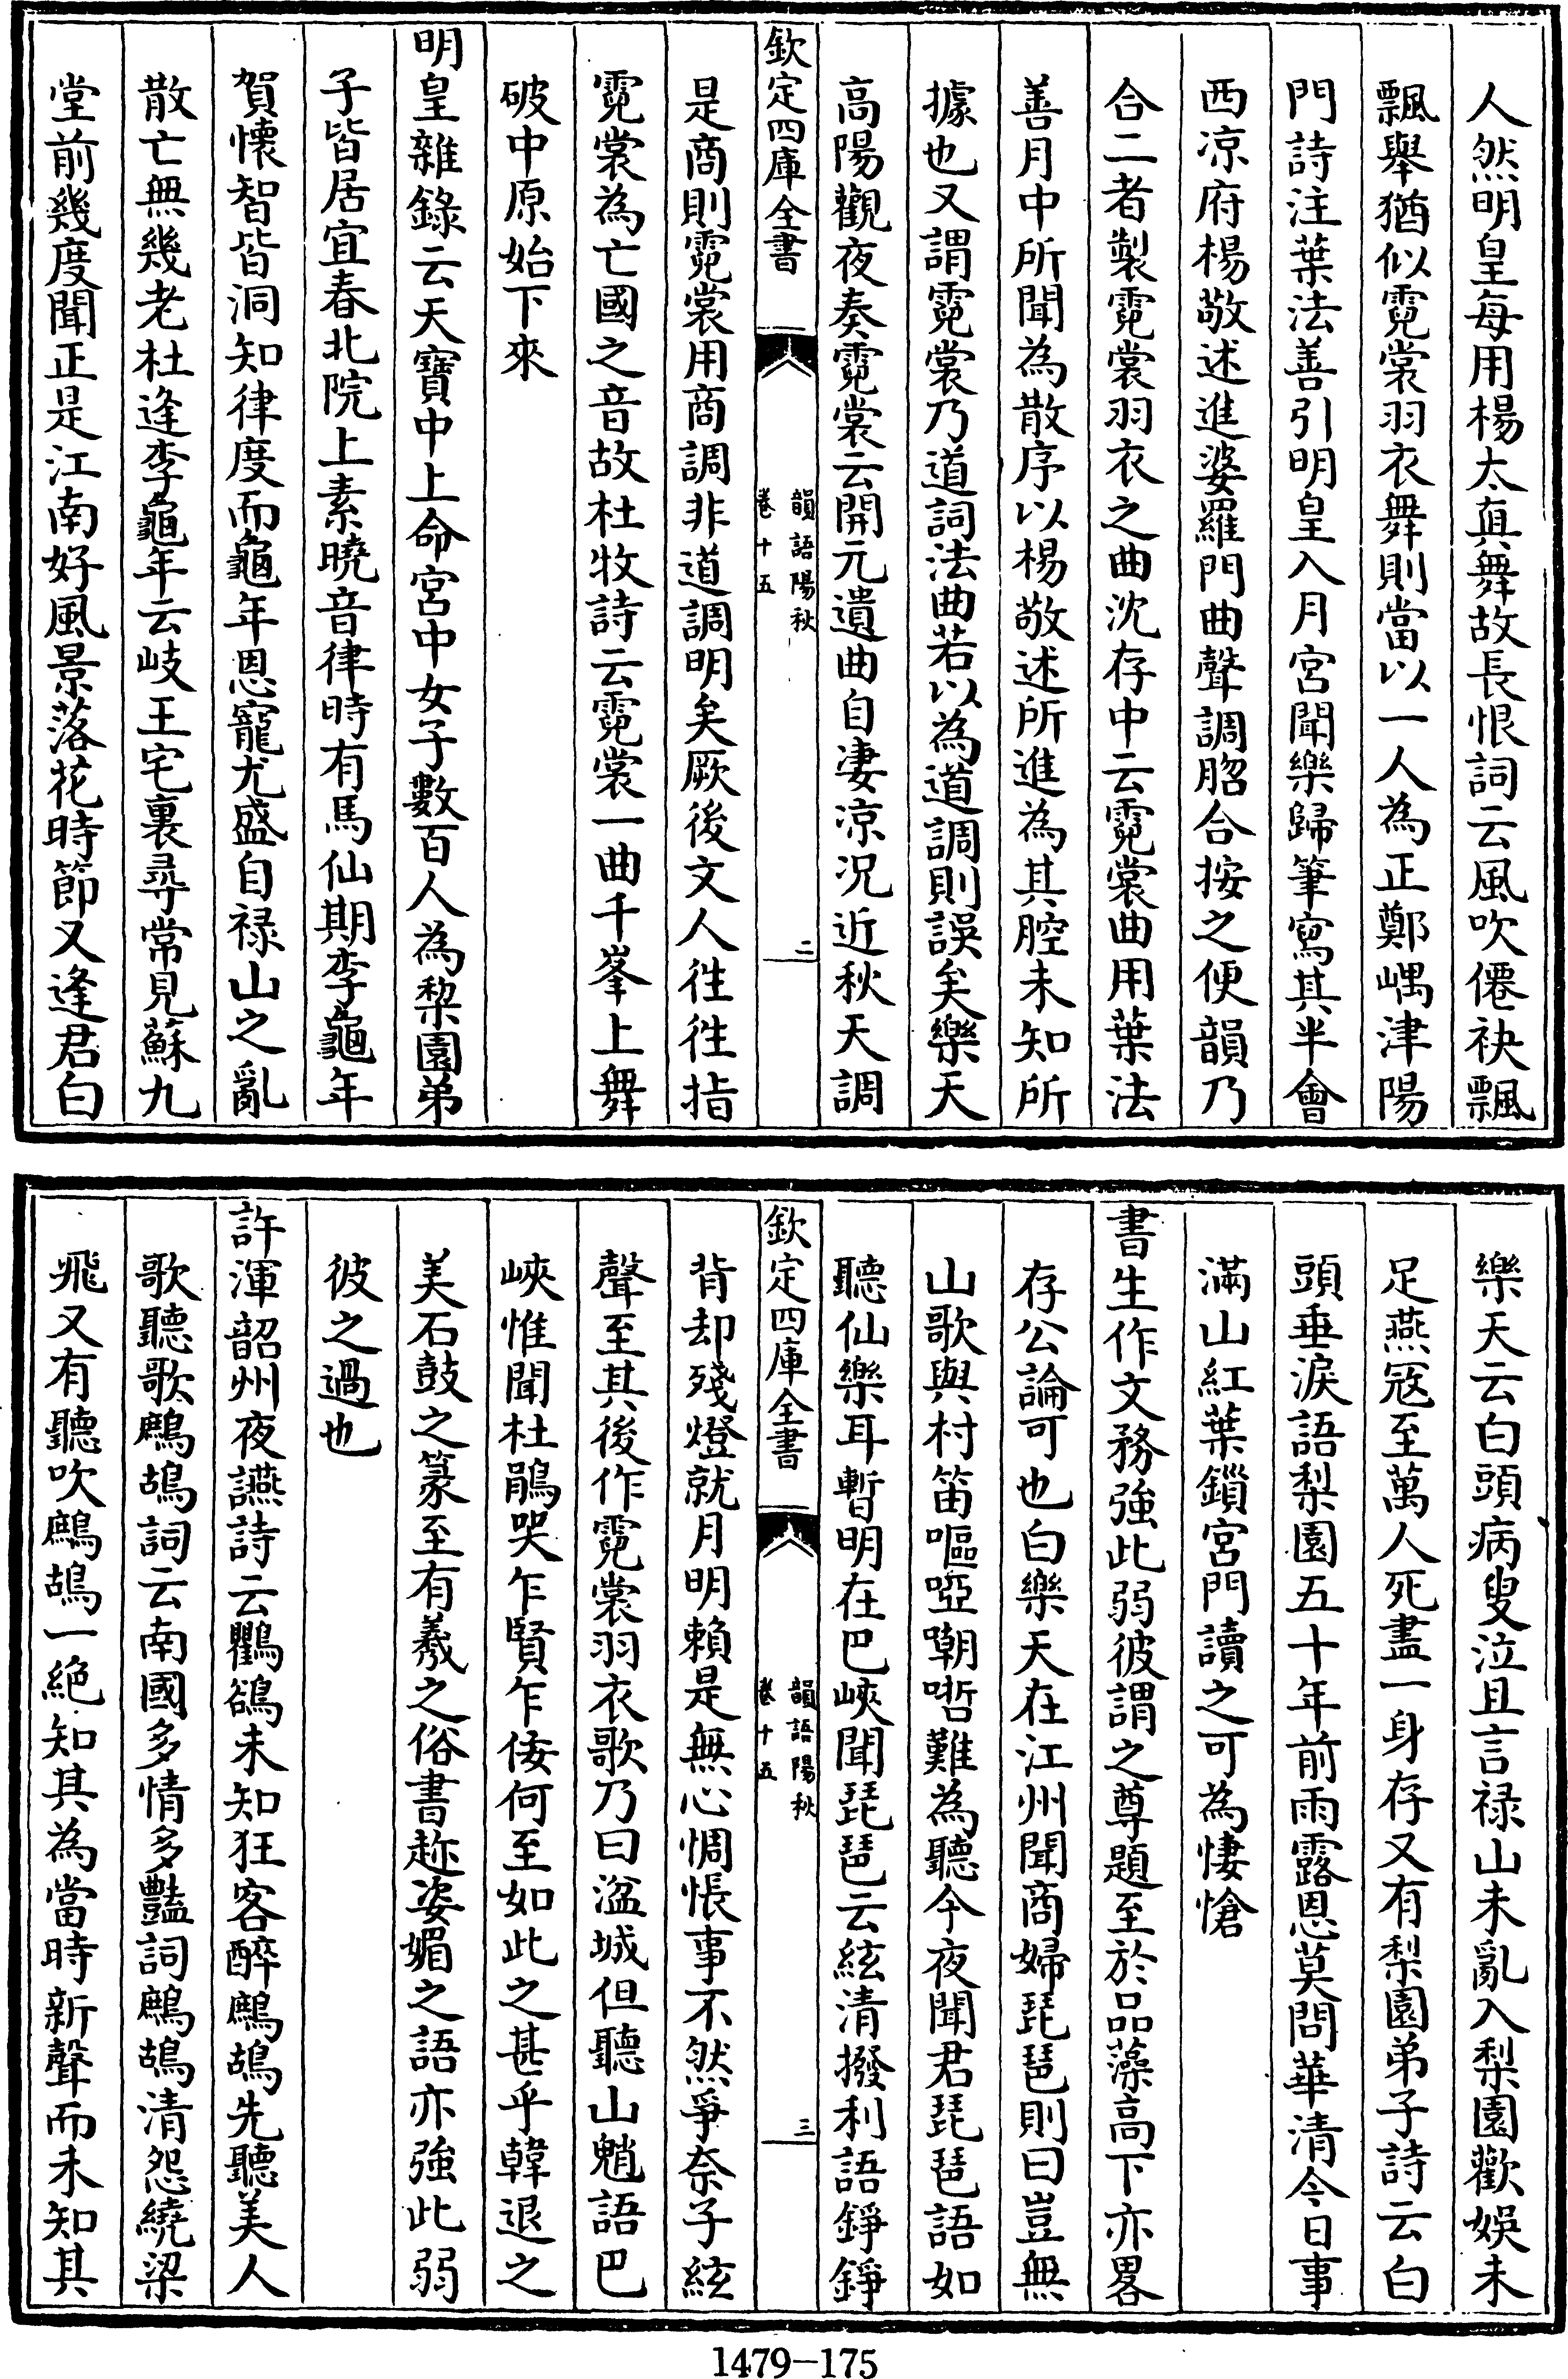 人然明皇每用楊太真舞故長恨詞云風吹僊袂飄
飄舉猶似霓裳羽衣舞則當以一人為正鄭嵎津陽
門詩注葉法善引明皇入月宮聞樂歸筆寫其半會
西凉府楊敬述進婆羅門曲聲調脗合按之便韻乃
合二者製霓裳羽衣之曲沈存中云霓裳曲用葉法
善月中所聞為散序以楊敬述所進為其腔未知所
據也又謂霓裳乃道詞法曲若以為道調則誤矣樂天
高陽觀夜奏霓裳云開元遺曲自凄凉况近秋天調
欽定四庫全書
韻語陽秋
卷十五
二
是商則霓裳用商調非道調明矣厥後文人往往指
霓裳為亡國之音故杜牧詩云霓裳一曲千峯上舞
破中原始下來
明皇雜錄云天寶中上命宮中女子數百人為梨園弟
子皆居宜春北院上素曉音律時有馬仙期李龜年
賀懷智皆洞知律度而龜年恩寵尤盛自禄山之亂
散亡無幾老杜逢李龜年云岐王宅裏尋常見蘇九
堂前幾度聞正是江南好風景落花時節又逢君白
樂天云白頭病叟泣且言禄山未亂入梨園歡娛未
足燕冦至萬人死盡一身存又有梨園弟子詩云白
頭垂淚語梨園五十年前雨露恩莫問華清今日事
滿山紅葉鎻宮門讀之可為悽愴
書生作文務強此弱彼謂之尊題至於品藻高下亦畧
存公論可也白樂天在江州聞商婦琵琶則曰豈無
山歌與村笛嘔啞嘲哳難為聽今夜聞君琵琶語如
聽仙樂耳暫明在巴峽聞琵琶云絃清撥利語錚錚
欽定四庫全書
韻語陽秋
卷十五
三
背却殘燈就月明賴是無心惆悵事不然爭奈子絃
聲至其後作霓裳羽衣歌乃曰湓城但聽山魈語巴
峽惟聞杜鵑哭乍賢乍佞何至如此之甚乎韓退之
美石鼓之篆至有羲之俗書趂姿媚之語亦強此弱
彼之過也
許渾韶州夜讌詩云鸜鵒未知狂客醉鷓鴣先聽美人
歌聽歌鷓鴣詞云南國多情多豔詞鷓鴣清怨繞梁
飛又有聽吹鷓鴣一絶知其為當時新聲而未知其
1479-175